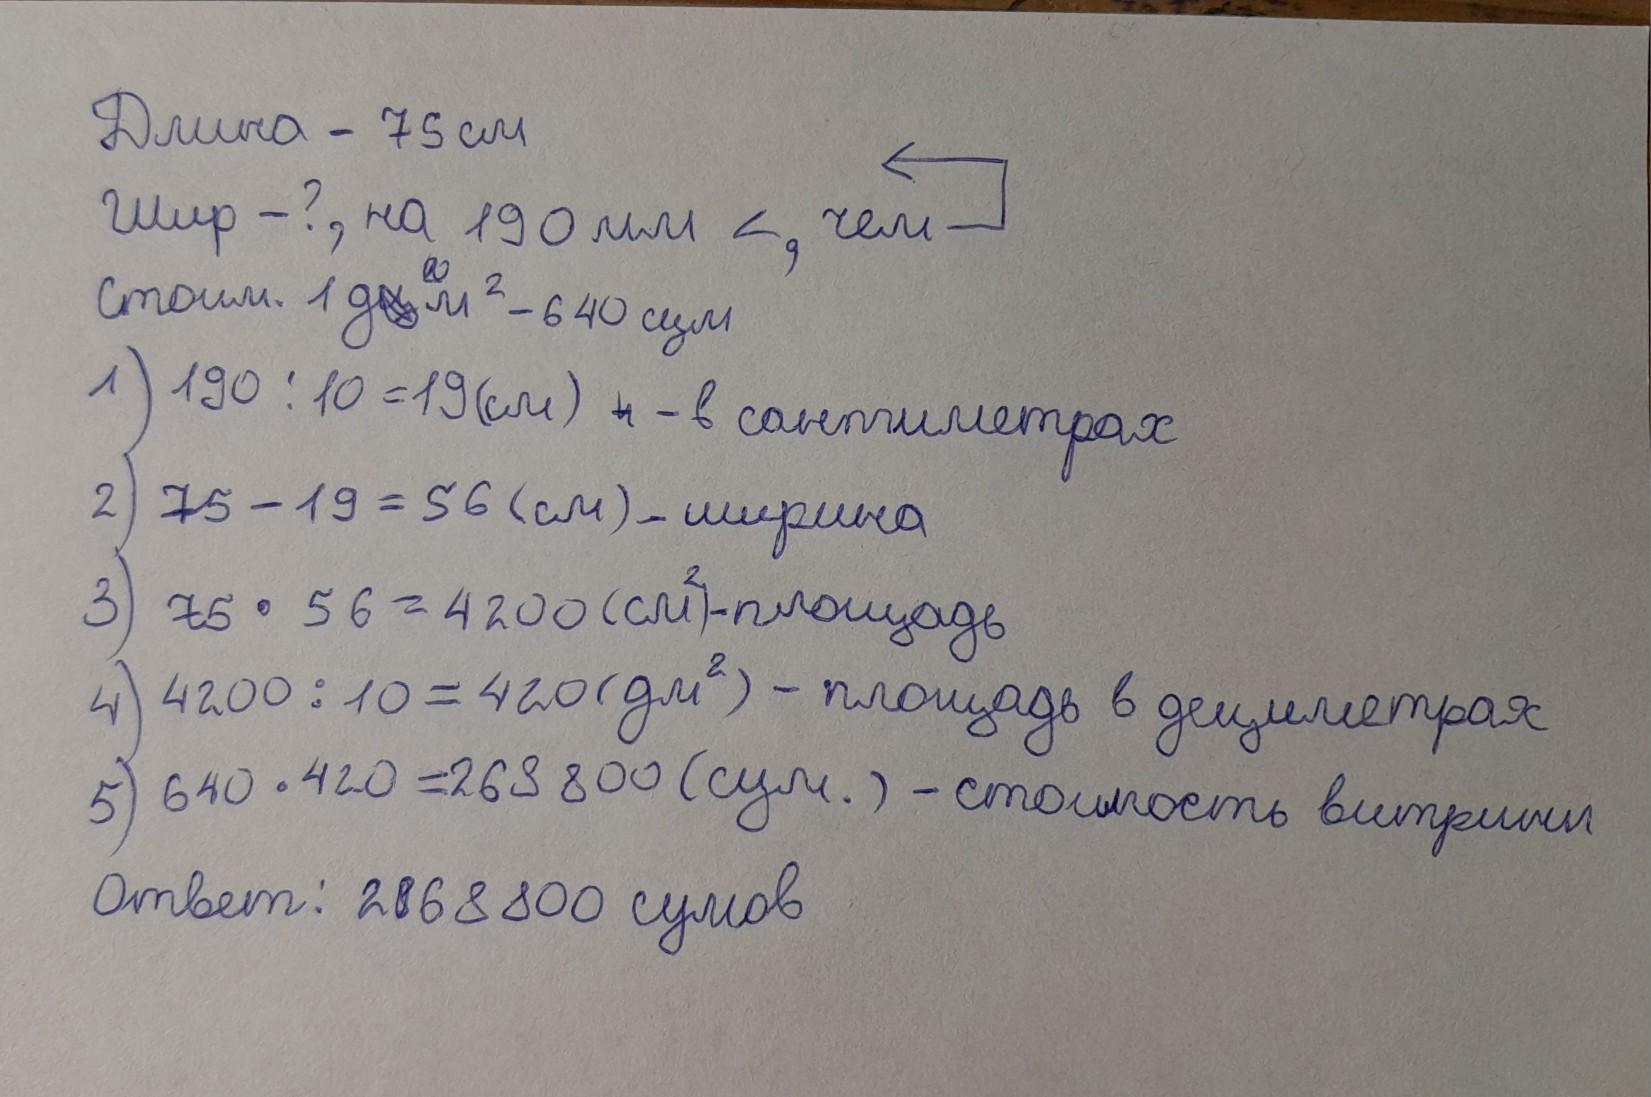 Длина - 75 см
Шир - ?, на 190 мм <, чем
Стоим. 1 дм² - 640 сум
1) 190 : 10 = 19 (см) - в сантиметрах
2) 75 - 19 = 56 (см) - ширина
3) 75 · 56 = 4200 (см²) - площадь
4) 4200 : 10 = 420 (дм²) - площадь в дециметрах
5) 640 · 420 = 268 800 (сум.) - стоимость витрины
Ответ: 268 800 сумов